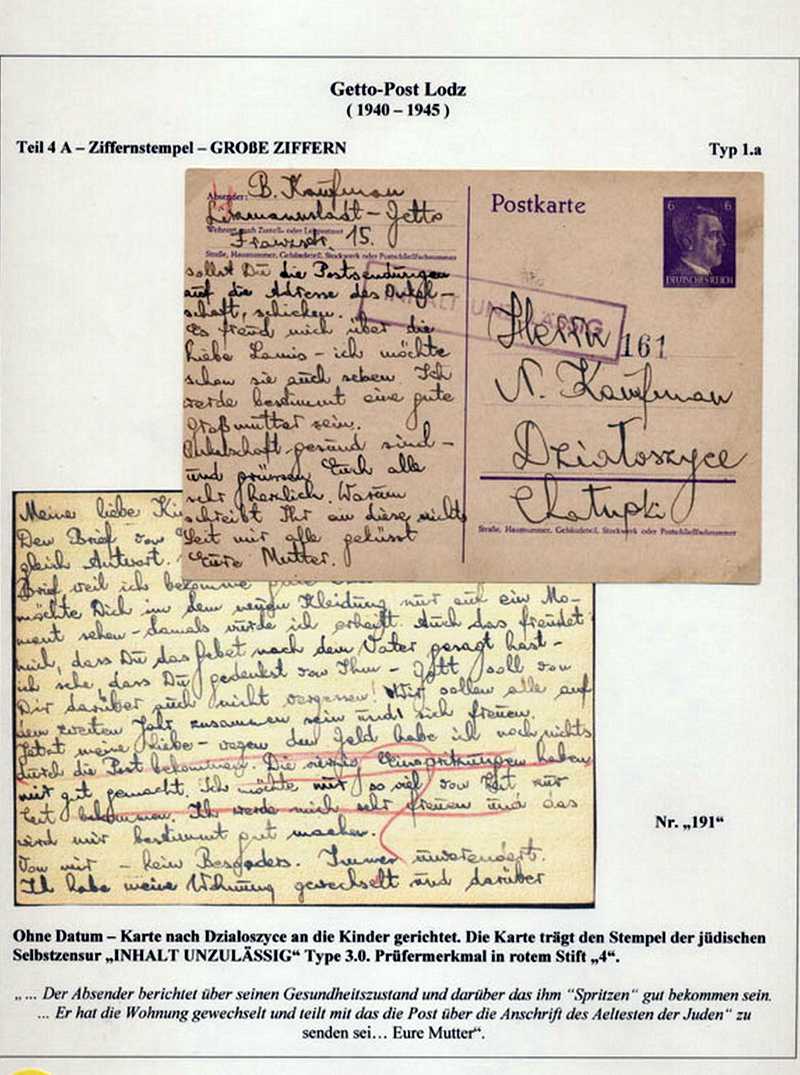 Getto-Post Lodz
( 1940 – 1945 )
Teil 4 A – Ziffernstempel – GROßE ZIFFERN
Typ 1.a
Absender: B. Kaufman
Litzmannstadt – Getto
Wohnort, auch Zustell- oder Leitpostamt
Franzstr. 15.
Straße, Hausnummer, Gebäudeteil, Stockwerk oder Postschließfachnummer
sollst Du die Postsendungen
auf die Adresse des
schaft, schicken.
Es freud mich über die
liebe – ich möchte
schon sie auch sehen. Ich
werde bestimmt eine gute
Großmutter sein.
gesund sind –
und grüssen Euch alle
sehr herzlich. Warum
schreibt Ihr an diese nichts
Seit mir alle geküsst
Eure Mutter.
Postkarte
6 6
DEUTSCHES REICH
INHALT UNZULÄSSIG
Herrn
161
N. Kaufman
Działoszyce
Chałupki
Straße, Hausnummer, Gebäudeteil, Stockwerk oder Postschließfachnummer
Meine liebe
Den Brief von
gleich Antwort.
Brief, weil ich bekomme
möchte Dich im dem neuen Kleidung nur auf ein Mo-
ment sehen – damals würde ich erheift. Auch das freudet
mich, dass Du das Gebet nach dem Vater gesagt hast –
ich sehe, dass Du gedenkst von Ihm – Gott soll von
Dir darüber auch nicht vergessen! Wir sollen alle auf
dem zweiten Jahr zusammen sein und sich freuen.
Jetzt meine liebe – wegen den Geld habe ich noch nichts
durch die Post bekommen. Die Einspritzungen haben
mir gut gemacht. Ich möchte nur so viel von Zeit zur
Zeit bekommen. Ich werde mich sehr freuen und das
wird mir bestimmt gut machen.
Von mir – kein Besonders. Immer unverendert.
Ich habe meine Wohnung gewechselt und darüber
Nr. „191“
Ohne Datum – Karte nach Dzialoszyce an die Kinder gerichtet. Die Karte trägt den Stempel der jüdischen
Selbstzensur „INHALT UNZULÄSSIG“ Type 3.0. Prüfermerkmal in rotem Stift „4“.
„ ... Der Absender berichtet über seinen Gesundheitszustand und darüber das ihm “Spritzen“ gut bekommen sein.
... Er hat die Wohnung gewechselt und teilt mit das die Post über die Anschrift des Aeltesten der Juden” zu
senden sei… Eure Mutter“.